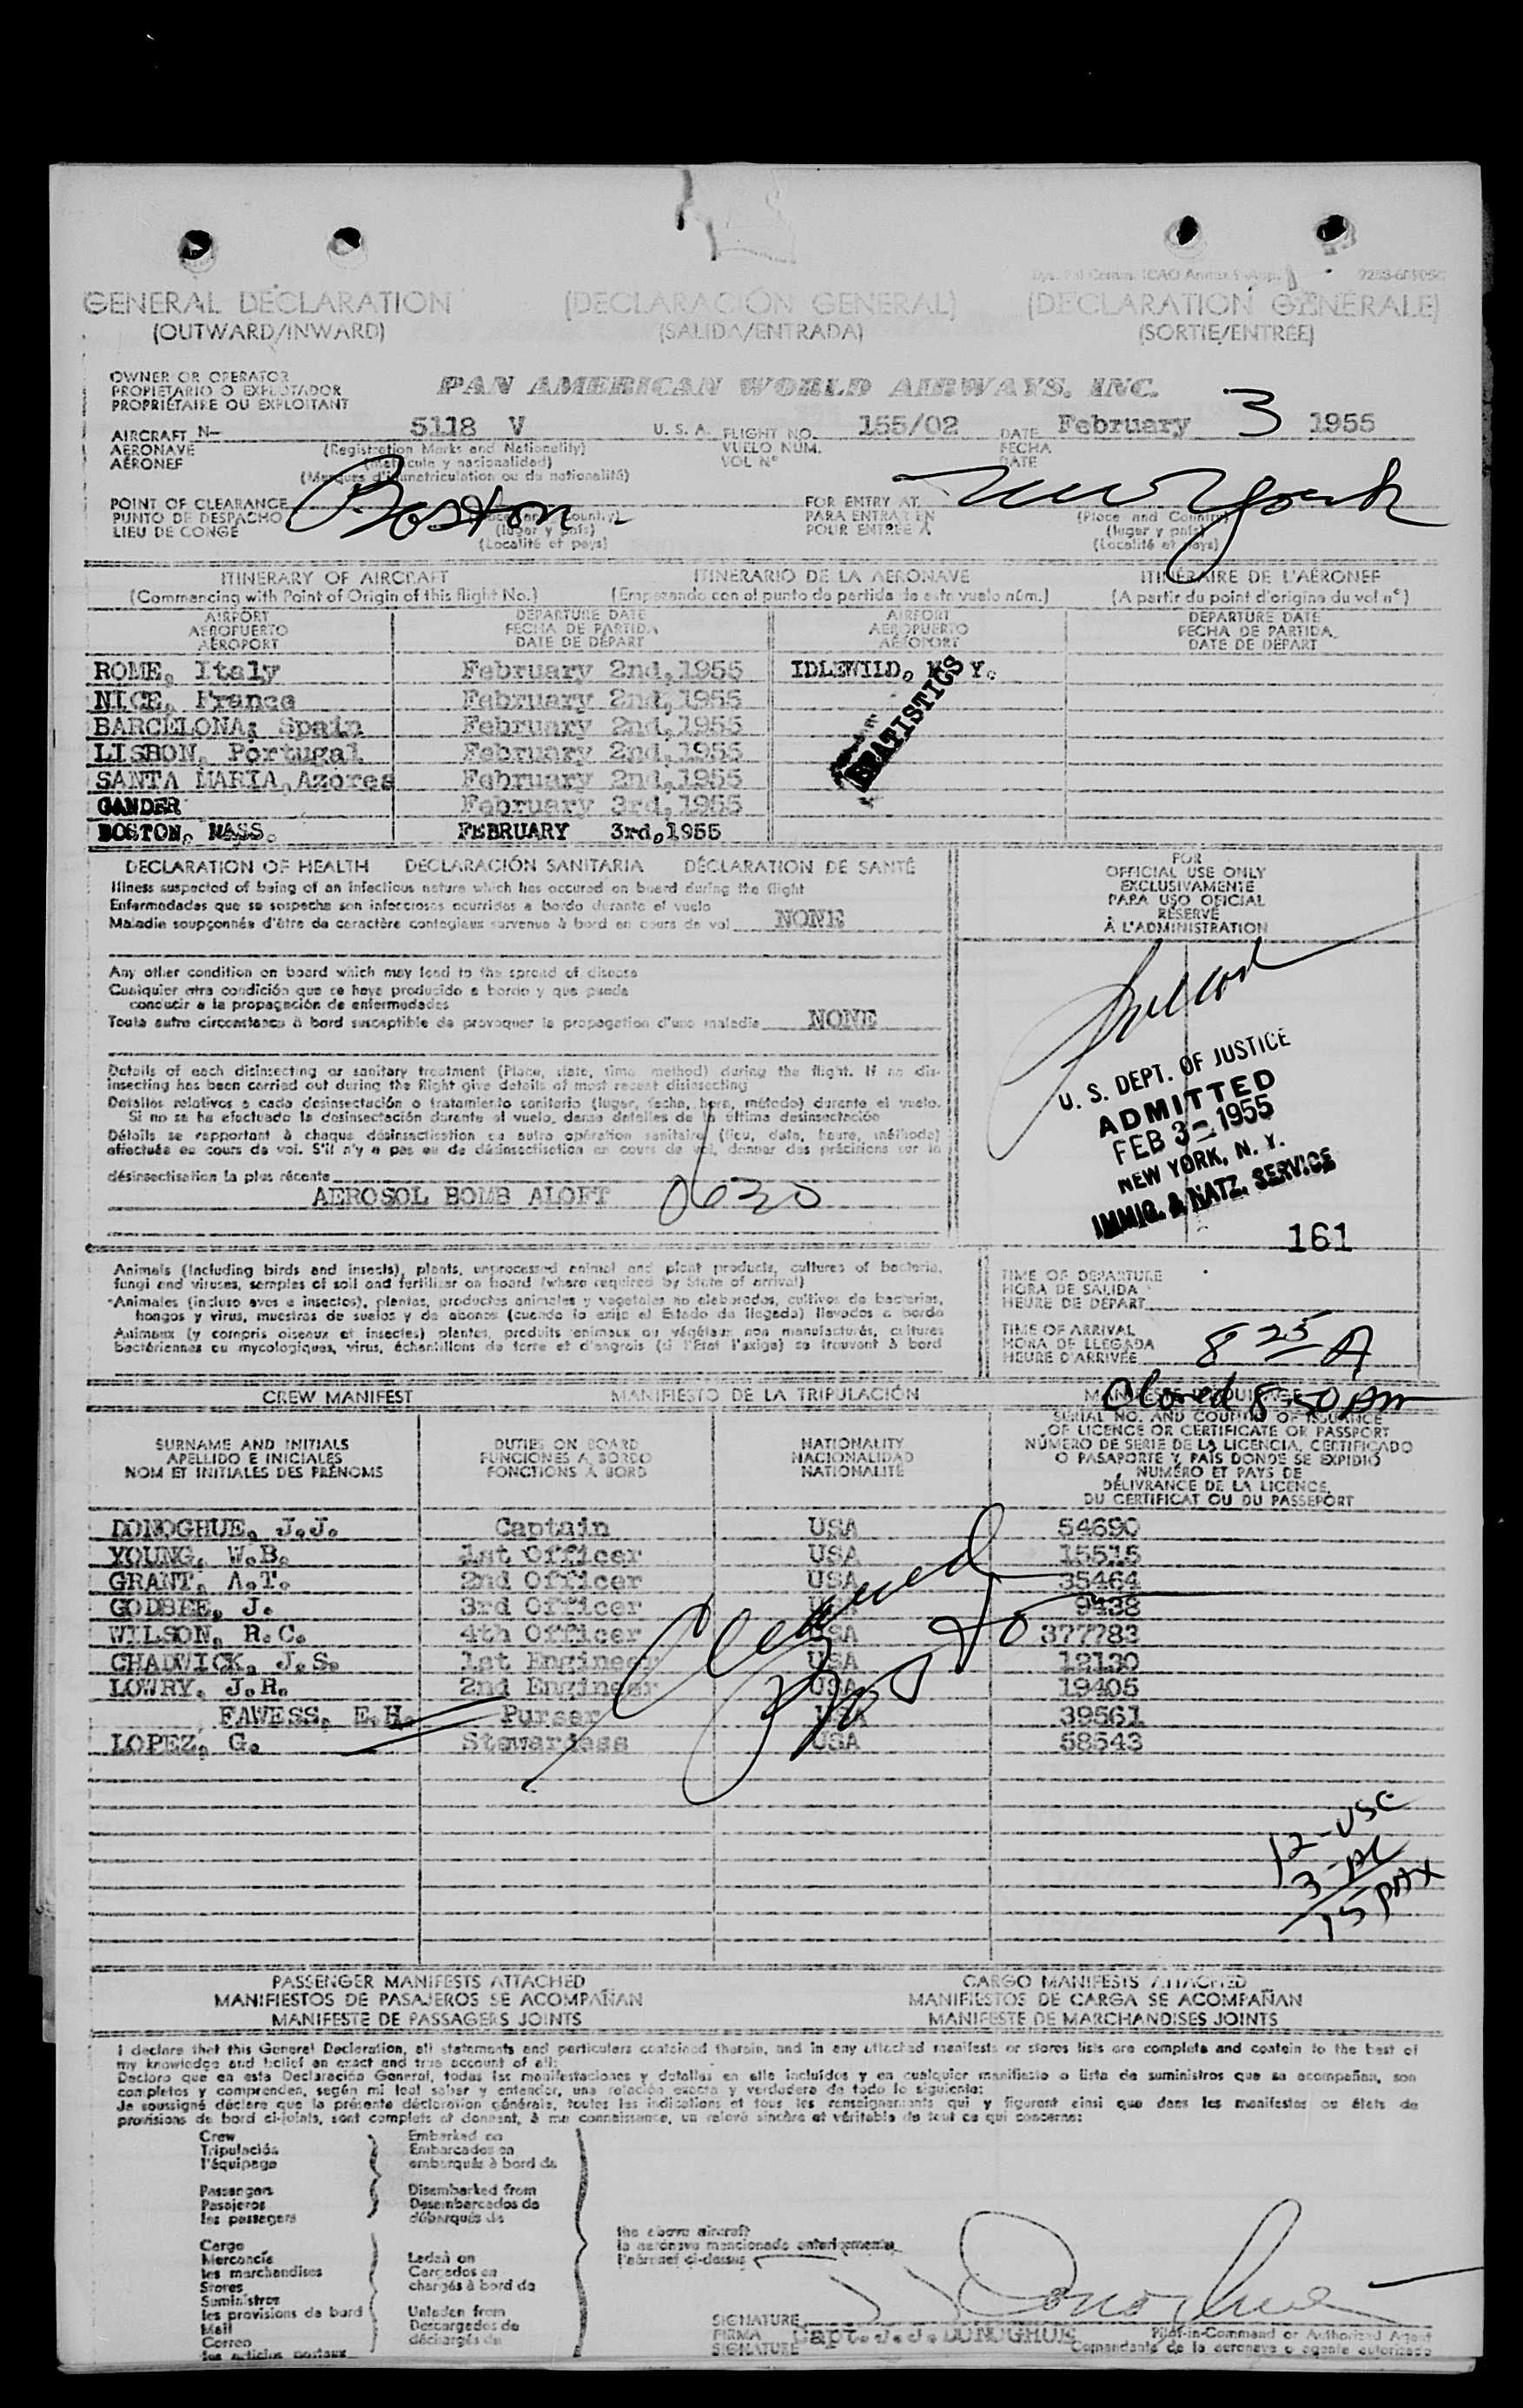 GENERAL DECLARATION (DECLARACIÓN GENERAL) (DÉCLARATION GÉNÉRALE)
(OUTWARD/INWARD) (SALIDA/ENTRADA) (SORTIE/ENTRÉE)
OWNER OR OPERATOR
PROPIETARIO O EXPLOTADOR PAN AMERICAN WORLD AIRWAYS, INC.
PROPRIÉTAIRE OU EXPLOITANT
AIRCRAFT N- 5118 V U. S. A. FLIGHT NO. 155/02 DATE February 3 1955
AERONAVE (Registration Marks and Nationality) VUELO NÚM. FECHA
AÉRONEF (Matrícula y nacionalidad) VOL Nº DATE
(Marques d'immatriculation ou de nationalité)
POINT OF CLEARANCE Boston FOR ENTRY AT New York
PUNTO DE DESPACHO (Place and Country) PARA ENTRAR EN (Place and Country)
LIEU DE CONGÉ (lugar y país) POUR ENTRÉE À (lugar y país)
(Localité et pays) (Localité et pays)
ITINERARY OF AIRCRAFT ITINERARIO DE LA AERONAVE ITINÉRAIRE DE L'AÉRONEF
(Commencing with Point of Origin of this flight No.) (Empezando con el punto de partida de este vuelo núm.) (A partir du point d'origine du vol nº)
AIRPORT DEPARTURE DATE AIRPORT DEPARTURE DATE
AEROPUERTO FECHA DE PARTIDA AEROPUERTO FECHA DE PARTIDA
AÉROPORT DATE DE DÉPART AÉROPORT DATE DE DÉPART
ROME, Italy February 2nd,1955 IDLEWILD, N. Y.
NICE, France February 2nd,1955
BARCELONA, Spain February 2nd,1955
LISBON, Portugal February 2nd,1955
SANTA MARIA,Azores February 2nd,1955
GANDER February 3rd,1955
BOSTON, MASS. FEBRUARY 3rd,1955
STATISTICS
DECLARATION OF HEALTH DECLARACIÓN SANITARIA DÉCLARATION DE SANTÉ
Illness suspected of being of an infectious nature which has occured on board during the flight
Enfermedades que se sospecha son infecciosas ocurridas a bordo durante el vuelo
Maladie soupçonnée d'être de caractère contagieux survenue à bord en cours de vol NONE
Any other condition on board which may lead to the spread of disease
Cualquier otra condición que se haya producido a bordo y que pueda
conducir a la propagación de enfermedades
Toute autre circonstance à bord susceptible de provoquer la propagation d'une maladie NONE
Details of each disinsecting or sanitary treatment (Place, date, time, method) during the flight. If no dis-
insecting has been carried out during the flight give details of most recent disinsecting
Detalles relativos a cada desinsectación o tratamiento sanitario (lugar, fecha, hora, método) durante el vuelo.
Si no se ha efectuado la desinsectación durante el vuelo, danse detalles de la última desinsectación
Détails se rapportant à chaque désinsectisation ou autre opération sanitaire (lieu, date, heure, méthode)
effectuée au cours de vol. S'il n'y a pas eu de désinsectisation en cours de vol, donner des précisions sur la
désinsectisation la plus récente
AEROSOL BOMB ALOFT 0630
FOR
OFFICIAL USE ONLY
EXCLUSIVAMENTE
PARA USO OFICIAL
RÉSERVÉ
À L'ADMINISTRATION
U. S. DEPT. OF JUSTICE
ADMITTED
FEB 3 - 1955
NEW YORK, N. Y.
IMMIG. & NATZ. SERVICE
161
Animals (Including birds and insects), plants, unprocessed animal and plant products, cultures of bacteria,
fungi and viruses, samples of soil and fertilizer on board (where required by State of arrival)
Animales (incluso aves e insectos), plantas, productos animales y vegetales no elaborados, cultivos de bacterias,
hongos y virus, muestras de suelos y de abonos (cuando lo exija el Estado de llegada) llevados a bordo
Animaux (y compris oiseaux et insectes) plantes, produits animaux ou végétaux non manufacturés, cultures
bactériennes ou mycologiques, virus, échantillons de terre et d'engrais (si l'État l'exige) se trouvant à bord
TIME OF DEPARTURE
HORA DE SALIDA
HEURE DE DÉPART
TIME OF ARRIVAL
HORA DE LLEGADA 8 25 A
HEURE D'ARRIVÉE
CREW MANIFEST MANIFIESTO DE LA TRIPULACIÓN
Closed 8 50 AM
SURNAME AND INITIALS DUTIES ON BOARD NATIONALITY SERIAL NO. AND COUNTRY OF ISSUANCE
APELLIDO E INICIALES FUNCIONES A BORDO NACIONALIDAD OF LICENCE OR CERTIFICATE OR PASSPORT
NOM ET INITIALES DES PRÉNOMS FONCTIONS À BORD NATIONALITÉ NÚMERO DE SERIE DE LA LICENCIA, CERTIFICADO
O PASAPORTE Y PAÍS DONDE SE EXPIDIÓ
NUMÉRO ET PAYS DE
DÉLIVRANCE DE LA LICENCE,
DU CERTIFICAT OU DU PASSEPORT
DONOGHUE, J.J. Captain USA 54690
YOUNG, W.B. 1st Officer USA 15515
GRANT, A.T. 2nd Officer USA 35464
GODBEE, J. 3rd Officer USA 9438
WILSON, R.C. 4th Officer USA 377783
CHADWICK, J.S. 1st Engineer USA 12130
LOWRY, J.R. 2nd Engineer USA 19405
FAWESS, E.H. Purser USA 39561
LOPEZ, G. Stewardess USA 58543
Cleared
12-USC
3-AL
15 PAX
PASSENGER MANIFESTS ATTACHED CARGO MANIFESTS ATTACHED
MANIFIESTOS DE PASAJEROS SE ACOMPAÑAN MANIFIESTOS DE CARGA SE ACOMPAÑAN
MANIFESTE DE PASSAGERS JOINTS MANIFESTE DE MARCHANDISES JOINTS
I declare that this General Declaration, all statements and particulars contained therein, and in any attached manifests or stores lists are complete and contain to the best of
my knowledge and belief an exact and true account of all:
Declaro que en esta Declaración General, todas las manifestaciones y detalles en ella incluídos y en cualquier manifiesto o lista de suministros que se acompañan, son
completos y comprenden, según mi leal saber y entender, una relación exacta y verdadera de todo lo siguiente:
Je soussigné déclare que la présente déclaration générale, toutes les indications et tous les renseignements qui y figurent ainsi que dans les manifestes ou états de
provisions de bord ci-joints, sont complets et donnent, à ma connaissance, un relevé sincère et véritable de tout ce qui concerne:
Crew Embarked on
Tripulación Embarcados en
l'équipage embarqués à bord de
Passengers Disembarked from
Pasajeros Desembarcados de
les passagers débarqués de
the above aircraft
la aeronave mencionada anteriormente
l'aéronef ci-dessus
Cargo
Mercancía Laden on
les marchandises Cargados en
Stores chargés à bord de
Suministros
les provisions de bord Unladen from
Mail Descargados de
Correo déchargés de
les articles postaux
J J Donoghue
SIGNATURE
FIRMA Capt. J. J. DONOGHUE Pilot-in-Command or Authorized Agent
SIGNATURE Comandante de la aeronave o agente autorizado